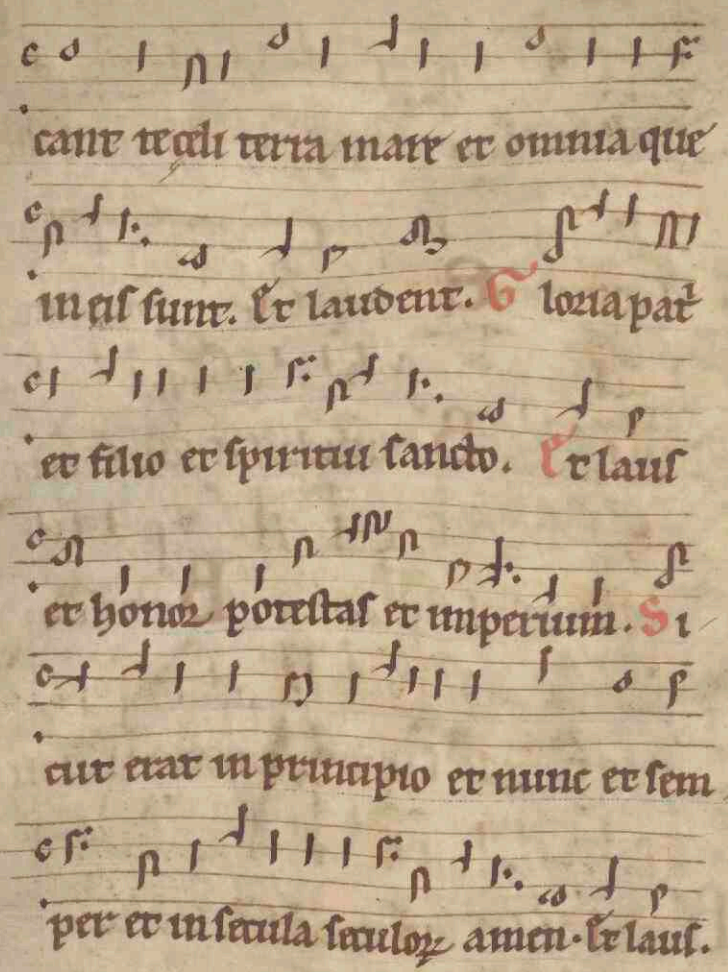 cant te celi terra mare et omnia que
in eis sunt. Et laudent. Gloria patr
et filio et spiritui sancto. Et laus
et honor potestas et imperium. Si
cut erat in principio et nunc et sem
per et in secula seculoꝝ amen. Et laus.